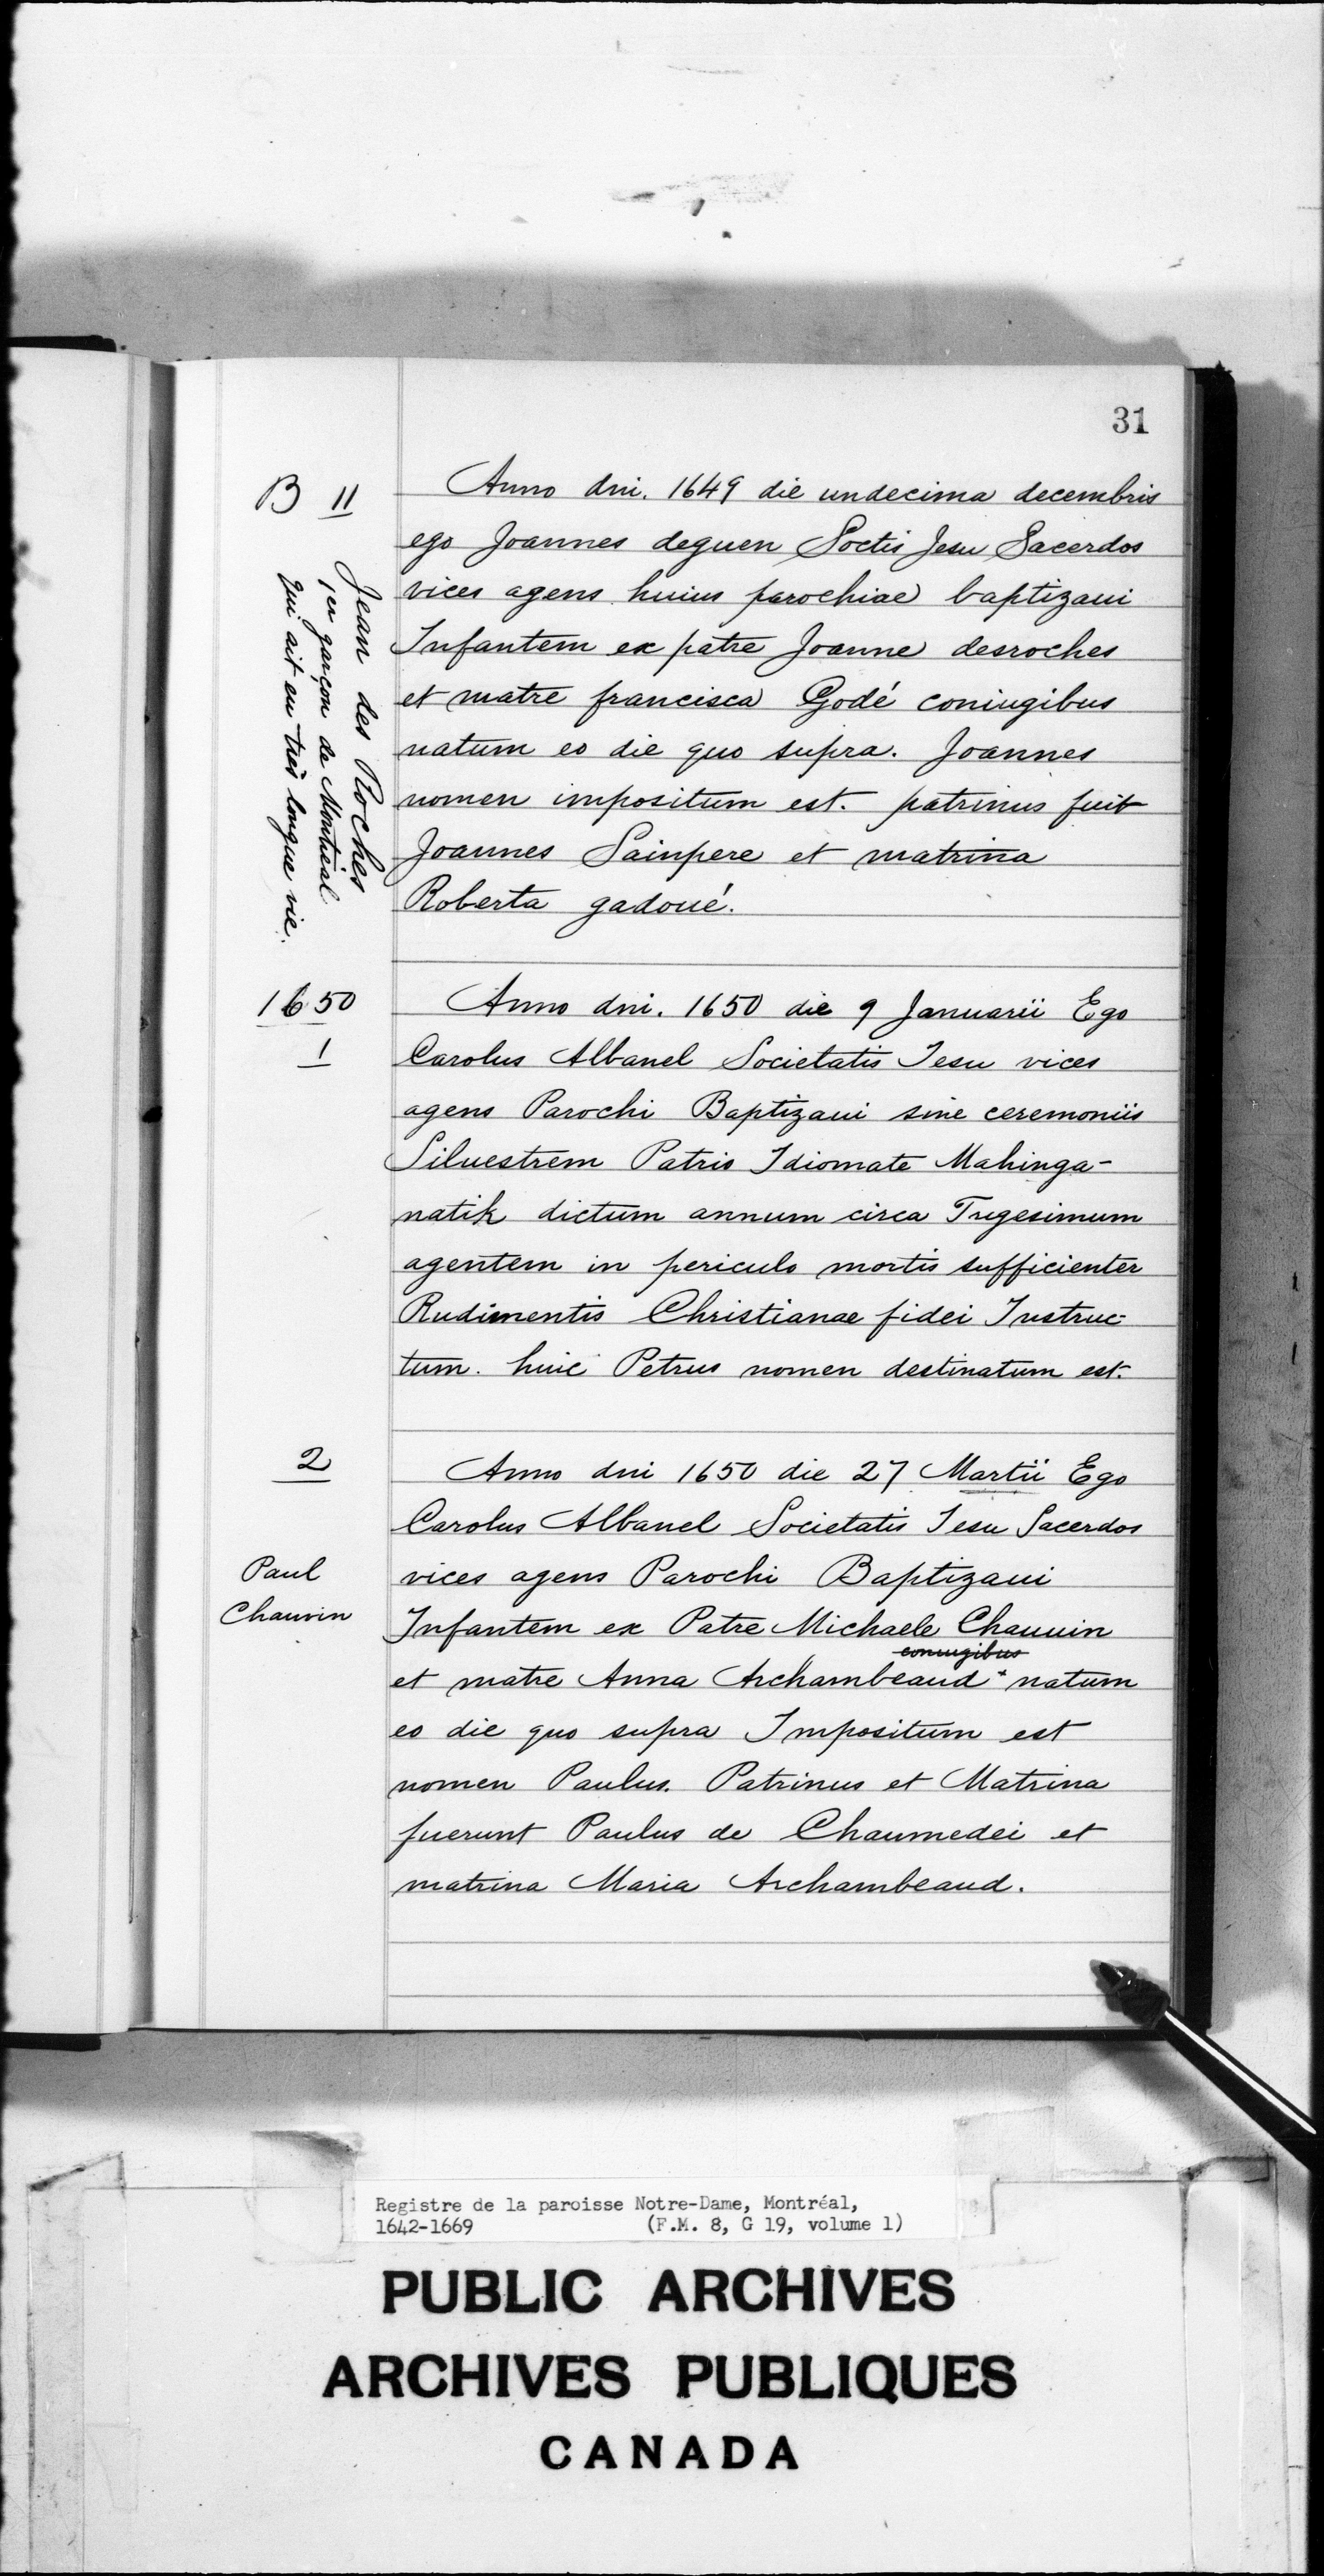 31
B 11
Jean des Roches
1er garçon de Montréal
qui ait eu très longue vie.
Anno dni. 1649 die undecima decembris
ego Joannes deguen Soctis Jesu Sacerdos
vices agens huius parochiae baptizaui
Infantem ex patre Joanne desroches
et matre francisca Godé coniugibus
natum eo die quo supra. Joannes
nomen impositum est. patrinus fuit
Joannes Sainpere et matrina
Roberta gadoué.
1650
1
Anno dni. 1650 die 9 Januarii Ego
Carolus Albanel Societatis Iesu vices
agens Parochi Baptizaui sine ceremoniis
Siluestrem Patris Idiomate Mahinga-
natik dictum annum circa Trigesimum
agentem in periculo mortis sufficienter
Rudimentis Christianae fidei Instruc-
tum. huic Petrus nomen destinatum est.
2
Paul
Chauvin
Anno dni 1650 die 27 Martii Ego
Carolus Albanel Societatis Iesu Sacerdos
vices agens Parochi Baptizaui
Infantem ex Patre Michaele Chauuin
coniugibus
et matre Anna Archambeaud + natum
eo die quo supra Impositum est
nomen Paulus. Patrinus et Matrina
fuerunt Paulus de Chaumedei et
matrina Maria Archambeaud.
Registre de la paroisse Notre-Dame, Montréal,
1642-1669 (F.M. 8, G 19, volume 1)
PUBLIC ARCHIVES
ARCHIVES PUBLIQUES
CANADA